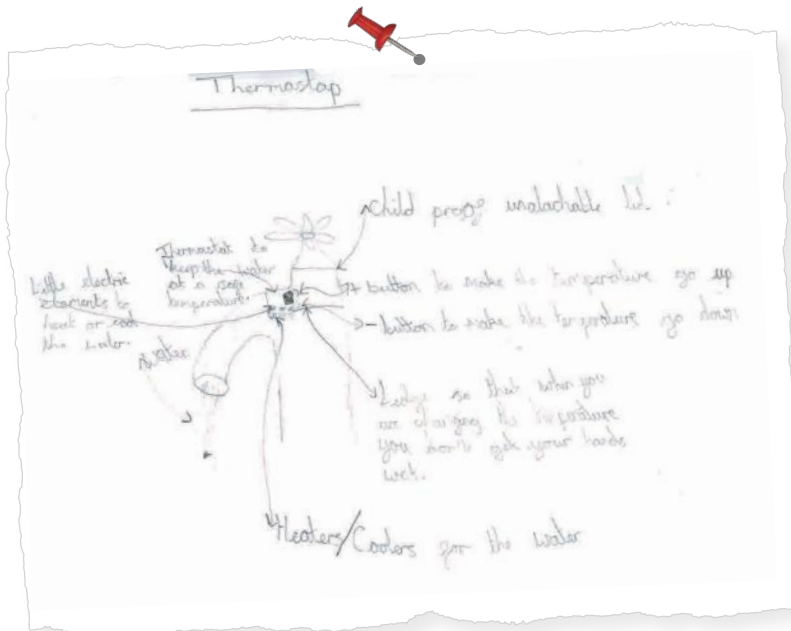 Thermostap
Child proof unatachable lid.
Thermostat to
keep the water
at a safe
temperature.
Little electric
elaments to
heat or cool
the water.
+ button to make the temperature go up
- button to make the temperature go down
water
Ledge so that when you
are changing the temperature
you don't get your hands
wet.
Heaters/Coolers for the water